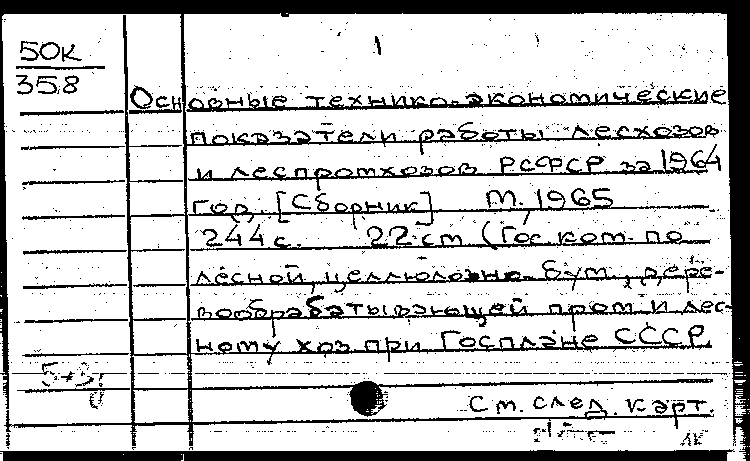 50к
358
Основные технико-экономические
показатели работы лесхозов
и леспромхозов РСФСР за 1964
год. [Сборник] М., 1965
244 с. 22 см (Гос. ком. по
лесной, целлюлозно-бум., дере-
вообрабатывающей пром. и лес-
ному хоз. при Госплане СССР.
См. след. карт.